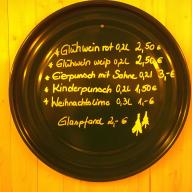 * Glühwein rot 0,2l 2,50€
* Glühwein weiß 0,2l 2,50€
* Eierpunsch mit Sahne 0,2l 3,-€
* Kinderpunsch 0,2l 1,50€
* Weihnachtslimo 0,3l 1,-€
Glaspfand 2,-€